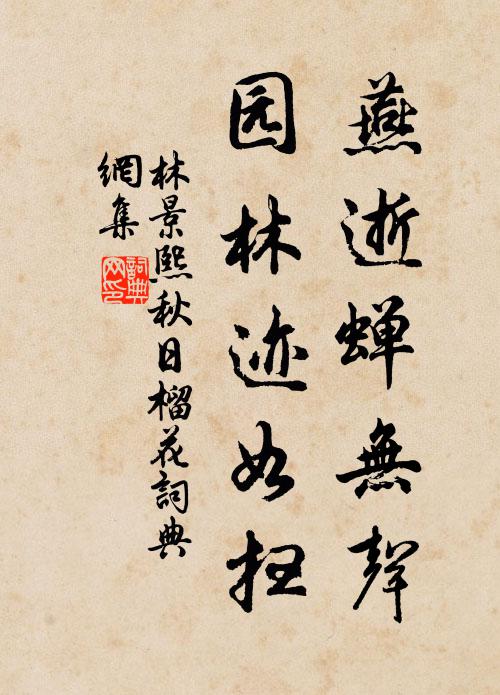 燕逝蝉無聲
园林迹如扫
林景熙秋日榴花詞典
網集
詞典
网印